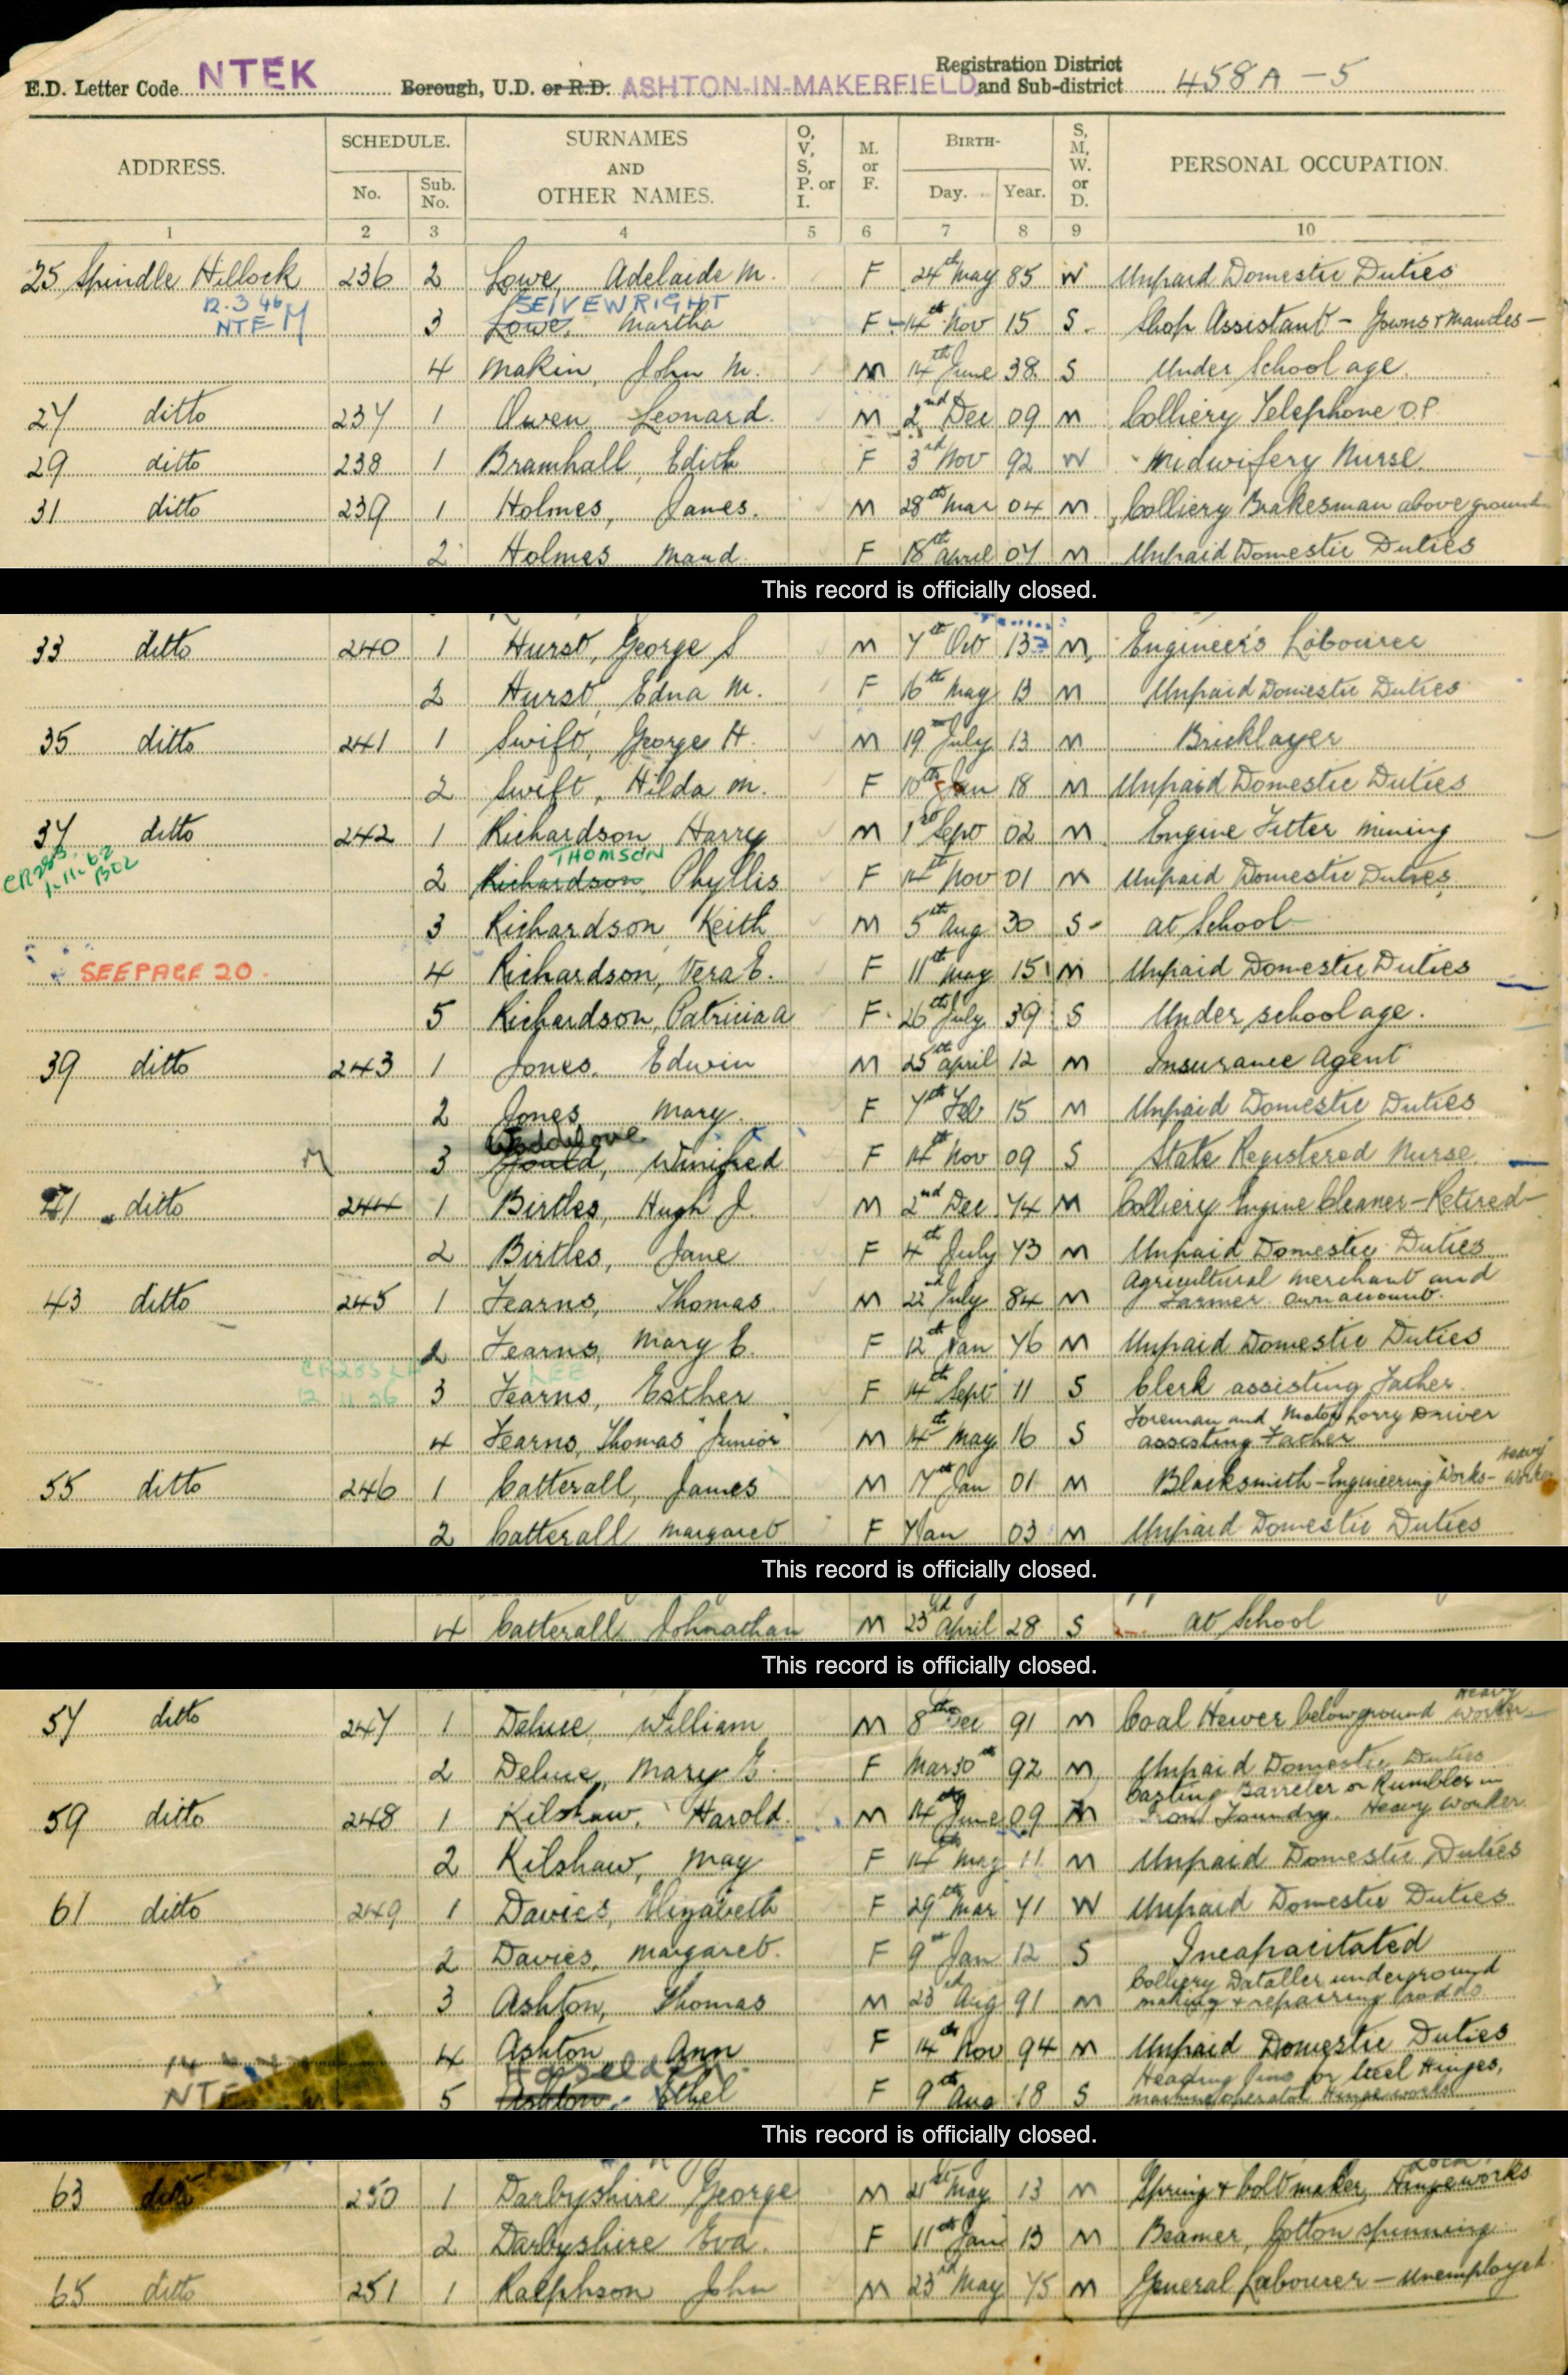 E.D. Letter Code NTEK Borough, U.D. or R.D. ASHTON-IN-MAKERFIELD Registration District and Sub-district 458A-5
ADDRESS. SCHEDULE. No. Sub. No. SURNAMES AND OTHER NAMES. O, V, S, P. or I. M. or F. BIRTH- Day. Year. S, M, W. or D. PERSONAL OCCUPATION.
1 2 3 4 5 6 7 8 9 10
25 Spindle Hillock 236 2 Lowe, Adelaide M. F 24th May 85 W Unpaid Domestic Duties
12.3.46 NTE M SEIVEWRIGHT
3 Lowe, Martha F 14th Nov 15 S. Shop Assistant - Gowns & Mantles -
4 Makin, John M. M 14th June 38 S Under School age.
27 ditto 237 1 Owen Leonard. M 2nd Dec 09 M Colliery Telephone O.P.
29 ditto 238 1 Bramhall, Edith F 3rd Nov 92 W Midwifery Nurse.
31 ditto 239 1 Holmes, James. M 28th Mar 04 M Colliery Brakesman above ground
2 Holmes Maud. F 18th April 07 M Unpaid Domestic Duties
This record is officially closed.
33 ditto 240 1 Hurst, George S M 7th Oct 13 M, Engineer's Labourer
2 Hurst, Edna M. F 16th May 13 M Unpaid Domestic Duties
35 ditto 241 1 Swift, George H. M 19 July 13 M Bricklayer
2 Swift, Hilda M. F 10th Jan 18 M Unpaid Domestic Duties
37 ditto 242 1 Richardson Harry M 1st Sept 02 M Engine Fitter Mining
THOMSON
2 Richardson, Phyllis F 14th Nov 01 M Unpaid Domestic Duties
3 Richardson Keith M 5th Aug 30 S - at School
SEE PAGE 20. 4 Richardson, Vera E. F 11th May 15 M Unpaid Domestic Duties
5 Richardson, Patricia A F. 26th July 39 S Under school age.
39 ditto 243 1 Jones. Edwin M 25th April 12 M Insurance Agent
2 Jones Mary. F 7th Feb 15 M Unpaid Domestic Duties
M 3 Winifred F 14th Nov 09 S State Registered Nurse.
41 ditto 244 1 Birtles, Hugh J. M 2nd Dec 74 M Colliery Engine Cleaner - Retired
2 Birtles, Jane F 4th July 73 M Unpaid Domestic Duties
43 ditto 245 1 Fearns, Thomas M 22nd July 84 M Agricultural Merchant and
Farmer own account.
2 Fearns, Mary E. F 12th Jan 76 M Unpaid Domestic Duties
LEE
3 Fearns, Esther F 14th Sept 11 S Clerk assisting Father.
4 Fearns, Thomas "Junior" M 14th May 16 S Foreman and Motor Lorry Driver
assisting Father
55 ditto 246 1 Catterall, James M 7th Jan 01 M Blacksmith - Engineering Works - Heavy Worker
2 Catterall Margaret F 7 Jan 03 M Unpaid Domestic Duties
This record is officially closed.
4 Catterall Johnathan M 23rd April 28 S at School
This record is officially closed.
57 ditto 247 1 Deluce, William M 8th Dec 91 M Coal Hewer below ground Heavy Worker
2 Deluce, Mary E. F Mar 30th 92 M Unpaid Domestic Duties
59 ditto 248 1 Kilshaw, Harold. M 14th June 09 M Casting Barreler or Rumbler in
Iron Foundry. Heavy Worker.
2 Kilshaw, May F 14th May 11 M Unpaid Domestic Duties
61 ditto 249 1 Davies, Elizabeth F 29th Mar 71 W Unpaid Domestic Duties
2 Davies, Margaret. F 9th Jan 12 S Incapacitated
3 Ashton, Thomas M 23rd Aug 91 M Colliery Dataller underground
making & repairing roads.
4 Ashton Ann F 14th Nov 94 M Unpaid Domestic Duties
NTE Haselden.
5 Ashton, Ethel F 9th Aug 18 S Heading Pins for Steel Hinges,
machine operator Hinge works
This record is officially closed.
63 ditto 250 1 Darbyshire George M 21st May 13 M Spring & bolt maker, Hingeworks
2 Darbyshire Eva. F 11th Jan 13 M Beamer, Cotton spinning
65 ditto 251 1 Ralphson John M 23rd May 75 M General Labourer - unemployed.